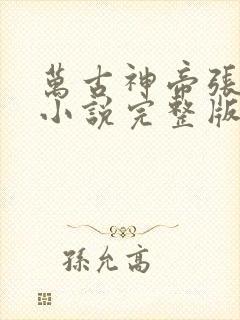 萬古神帝張
小說完整版
孫允高